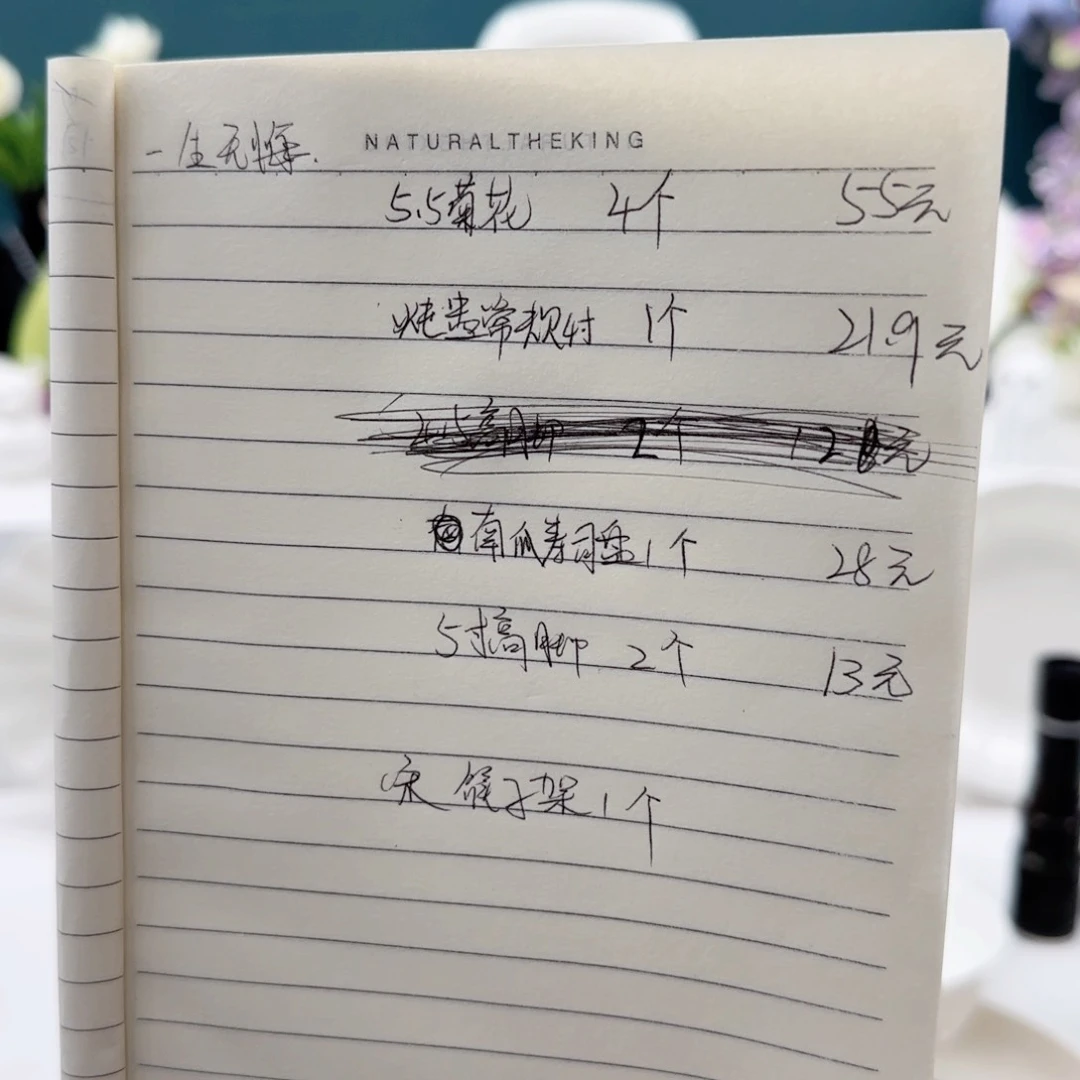 NATURALTHEKING
一生无悔.
5.5菊花 4个 55元
炖盅带 1个 21.9元
高脚 2个 12元
南瓜寿司盘1个 28元
5寸高脚 2个 13元
送筷子架1个